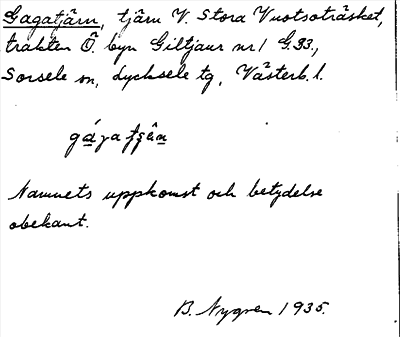 Gagatjärn, tjärn V. Stora Vuotsoträsket,
trakten Ö. byn Giltjaur nr 1 G.33.,
Sorsele sn, Lycksele tg, Västerb. l.
Namnets uppkomst och betydelse
obekant.
B. Nygren 1935.